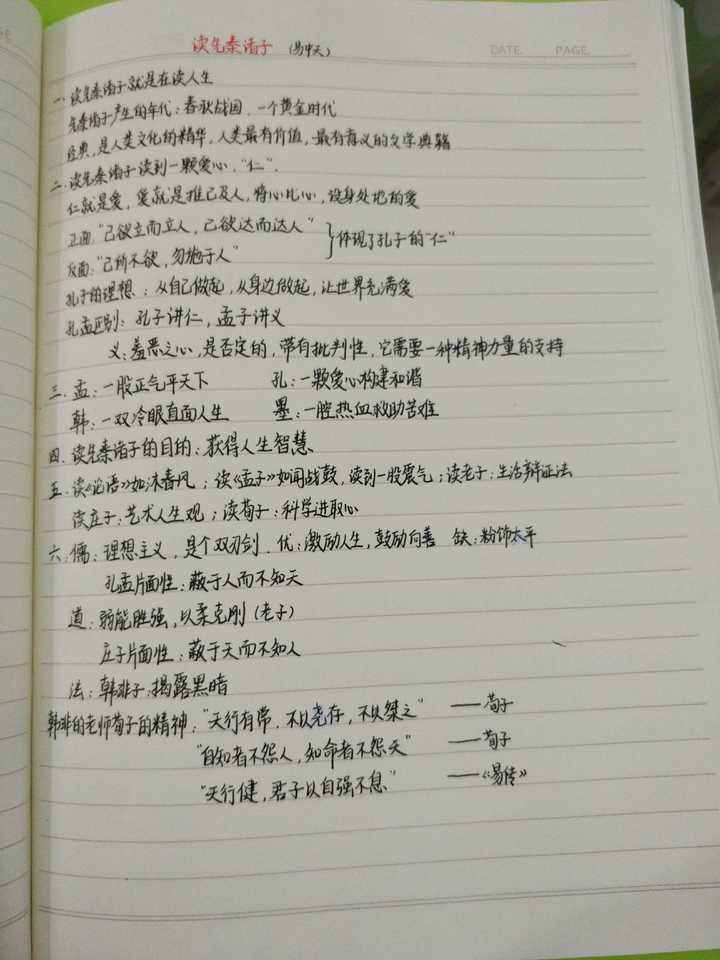 读先秦诸子 (易中天)
DATE PAGE
一. 读先秦诸子就是在读人生
先秦诸子产生的年代:春秋战国,一个黄金时代
经典,是人类文化的精华,人类最有价值,最有意义的文学典籍
二. 读先秦诸子读到一颗爱心,"仁".
仁就是爱,爱就是推己及人,将心比心,设身处地的爱
正面:"己欲立而立人,己欲达而达人" }体现了孔子的"仁"
反面:"己所不欲,勿施于人"
孔子的理想:从自己做起,从身边做起,让世界充满爱
孔孟区别:孔子讲仁,孟子讲义
义:羞恶之心,是否定的,带有批判性,它需要一种精神力量的支持
三. 孟:一股正气平天下 孔:一颗爱心构建和谐
韩:一双冷眼直面人生 墨:一腔热血救助苦难
四. 读先秦诸子的目的:获得人生智慧
五. 读《论语》如沐春风;读《孟子》如闻战鼓,读到一股震气;读老子:生活辩证法
读庄子:艺术人生观;读荀子:科学进取心
六. 儒:理想主义,是个双刃剑.优:激励人生,鼓励向善 缺:粉饰太平
孔孟片面性:蔽于人而不知天
道:弱能胜强,以柔克刚(老子)
庄子片面性:蔽于天而不知人
法:韩非子:揭露黑暗
韩非的老师荀子的精神:"天行有常,不以尧存,不以桀亡" ——荀子
"自知者不怨人,知命者不怨天" ——荀子
"天行健,君子以自强不息" ——《易传》